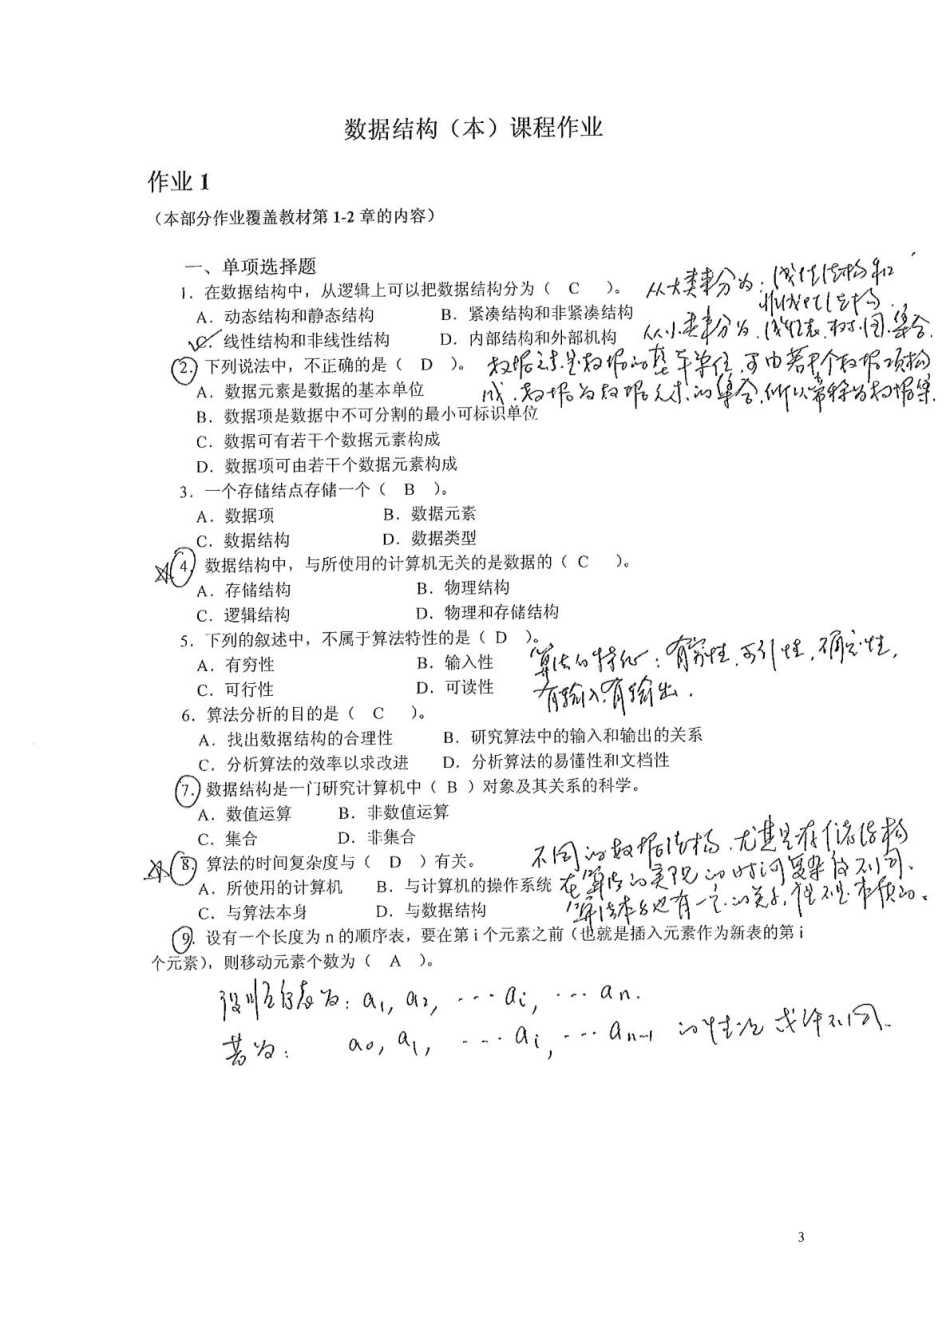 数据结构（本）课程作业
作业 1
（本部分作业覆盖教材第 1-2 章的内容）
一、单项选择题
1．在数据结构中，从逻辑上可以把数据结构分为（ C ）。
从大类来分为：线性结构和
非线性结构.
A．动态结构和静态结构 B．紧凑结构和非紧凑结构
C．线性结构和非线性结构 D．内部结构和外部机构
从小类来分为.线性表.树.图.集合.
2．下列说法中，不正确的是（ D ）。
数据元素是数据的基本单位,可由若干个数据项构
A．数据元素是数据的基本单位
成.数据为数据元素的集合,所以常称为数据集.
B．数据项是数据中不可分割的最小可标识单位
C．数据可有若干个数据元素构成
D．数据项可由若干个数据元素构成
3．一个存储结点存储一个（ B ）。
A．数据项 B．数据元素
C．数据结构 D．数据类型
4．数据结构中，与所使用的计算机无关的是数据的（ C ）。
A．存储结构 B．物理结构
C．逻辑结构 D．物理和存储结构
5．下列的叙述中，不属于算法特性的是（ D ）。
算法的特征：有穷性,可行性,确定性,
A．有穷性 B．输入性
C．可行性 D．可读性
有输入,有输出.
6．算法分析的目的是（ C ）。
A．找出数据结构的合理性 B．研究算法中的输入和输出的关系
C．分析算法的效率以求改进 D．分析算法的易懂性和文档性
7．数据结构是一门研究计算机中（ B ）对象及其关系的科学。
A．数值运算 B．非数值运算
C．集合 D．非集合
不同的数据结构,尤其是存储结构
8．算法的时间复杂度与（ D ）有关。
A．所使用的计算机 B．与计算机的操作系统
在算法的实现的时间复杂度不同.
C．与算法本身 D．与数据结构
算法本身也有一定的关系,但不是本质的.
9．设有一个长度为 n 的顺序表，要在第 i 个元素之前（也就是插入元素作为新表的第 i
个元素），则移动元素个数为（ A ）。
设顺序表为：a₁, a₂, ··· aᵢ, ··· aₙ.
若为： a₀, a₁, ···· aᵢ, ··· aₙ₋₁ 的情况或许不同.
3